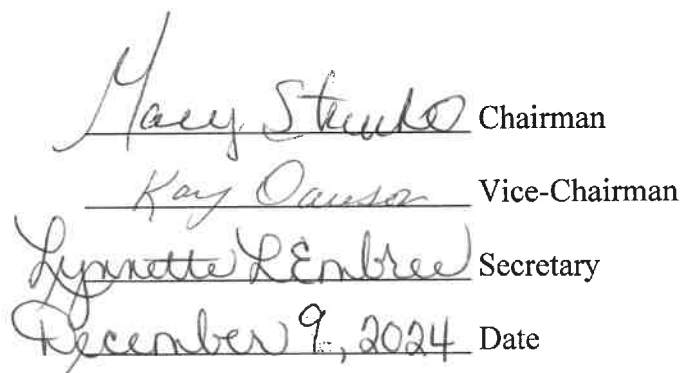 Mary Chairman
Kay Dawson Vice-Chairman
Lynnette L Embree Secretary
December 9, 2024 Date